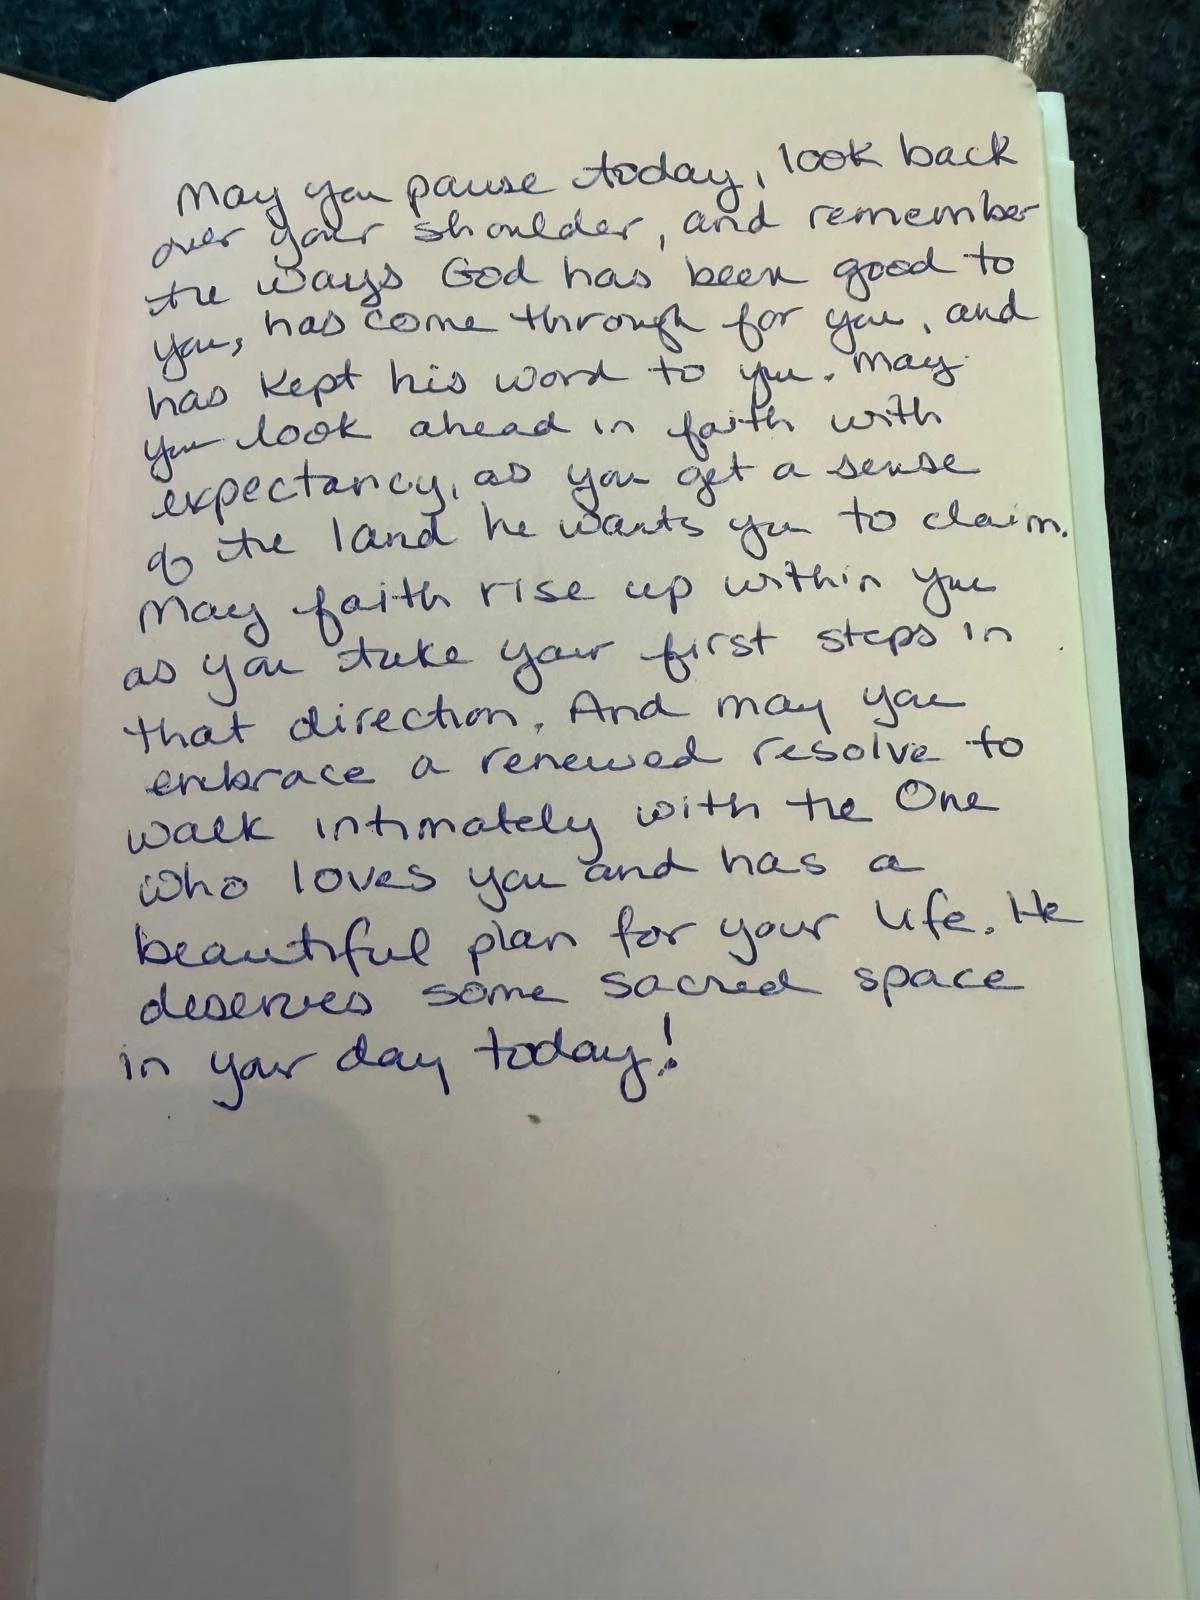 May you pause today, look back
over your shoulder, and remember
the ways God has been good to
you, has come through for you, and
has kept his word to you. May
you look ahead in faith with
expectancy, as you get a sense
of the land he wants you to claim.
May faith rise up within you
as you take your first steps in
that direction. And may you
embrace a renewed resolve to
walk intimately with the One
who loves you and has a
beautiful plan for your life. He
deserves some sacred space
in your day today!